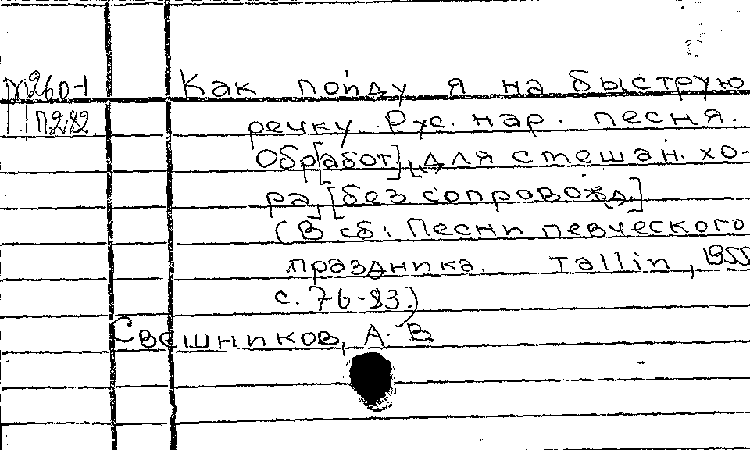 М260-1 Как пойду я на быструю
П282 речку. Рус. нар. песня.
Обр[абот], для смешан. хо-
ра, [без сопровожд.]
(В сб: Песни певческого
праздника. Tallin, 1955
с. 76-83.)
Свешников, А. В.